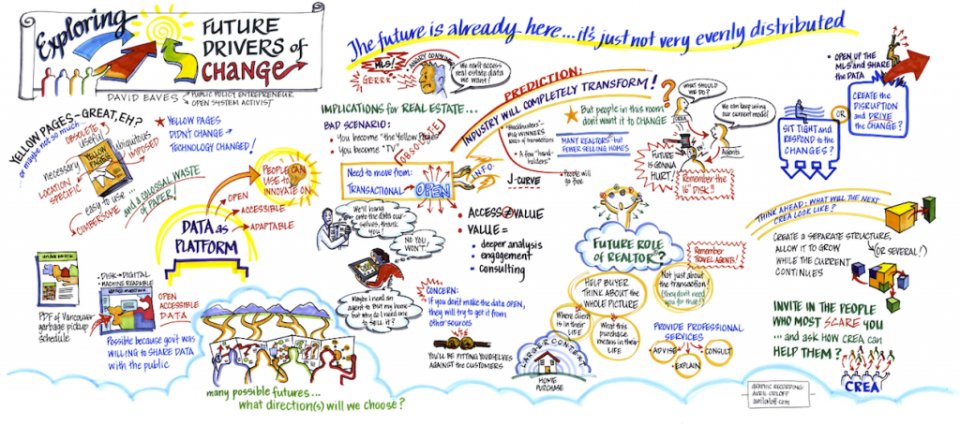 Exploring
FUTURE
DRIVERS of
CHANGE
DAVID EAVES
PUBLIC POLICY ENTREPRENEUR
OPEN SYSTEM ACTIVIST
The future is already here...it's just not very evenly distributed
YELLOW PAGES - GREAT, EH?
or maybe not so much...
OBSOLETE
useful
Ubiquitous
IMPOSED
Necessary
LOCATION
SPECIFIC
YELLOW
PAGES
easy to use...
CUMBERSOME
and a COLOSSAL WASTE
of PAPER!
YELLOW PAGES
DIDN'T CHANGE
TECHNOLOGY CHANGED!
PEOPLE CAN
USE to
INNOVATE ON
OPEN
ACCESSIBLE
ADAPTABLE
DATA as
PLATFORM
PDF of Vancouver
garbage pickup
schedule
DISK → DIGITAL
MACHINE READABLE
OPEN
ACCESSIBLE
DATA
Possible because gov't was
WILLING to SHARE DATA
with the public
many possible futures...
what direction(s) will we choose?
MLS!
GRRRR
IMPLICATIONS for REAL ESTATE...
BAD SCENARIO:
You become "the Yellow Pages"
You become "TV"
OBSOLETE
Need to move from:
TRANSACTIONAL
OPEN
INFO.
PREDICTION:
INDUSTRY WILL COMPLETELY TRANSFORM!
But people in this room
don't want it to CHANGE
BIG WINNERS
A few "hand-
holders"
MANY REALTORS - but
FEWER SELLING HOMES
J-CURVE
People will
go free
WHAT SHOULD
WE DO?
We can keep using
our current model!
Agents
FUTURE
IS GONNA
HURT!
Remember the
16" DISK!!
We'll hang
onto the data our-
selves, thank
you!
NO YOU
WON'T
Maybe I need an
agent to BUY my home
but why do I need one
to SELL it?
ACCESS ≠ VALUE
VALUE =
deeper analysis
engagement
consulting
CONCERN:
If you don't make the data OPEN,
they will try to get it from
other sources
YOU'LL BE PITTING YOURSELVES
AGAINST the CUSTOMERS
FUTURE ROLE
of REALTOR?
Remember
TRAVEL AGENTS!
HELP BUYER
THINK ABOUT the
WHOLE PICTURE
Not just about
the transaction
(they don't need
you for that!)
Where client
is in their
LIFE
What this
purchase
means in their
LIFE
LARGER CONTEXT
HOME
PURCHASE
PROVIDE PROFESSIONAL
SERVICES
ADVISE
CONSULT
EXPLAIN
OPEN UP the
MLS and SHARE
the DATA
CREATE the
DISRUPTION
and DRIVE
the CHANGE?
SIT TIGHT and
RESPOND to the
CHANGES?
THINK AHEAD: WHAT WILL the NEXT
CREA LOOK LIKE?
CREATE A SEPARATE STRUCTURE,
ALLOW IT to GROW
WHILE the CURRENT
CONTINUES
(OR SEVERAL!)
INVITE IN the PEOPLE
WHO MOST SCARE YOU
...and ask HOW CREA can
HELP THEM?
CREA
GRAPHIC RECORDING:
AVRIL ORLOFF
avrilorloff.com